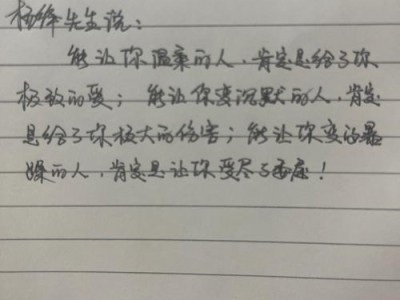 杨绛先生说:
能让你温柔的人，肯定是给了你
极致的爱；能让你变沉默的人，肯定
是给了你极大的伤害；能让你变的暴
躁的人，肯定是让你受尽了委屈！